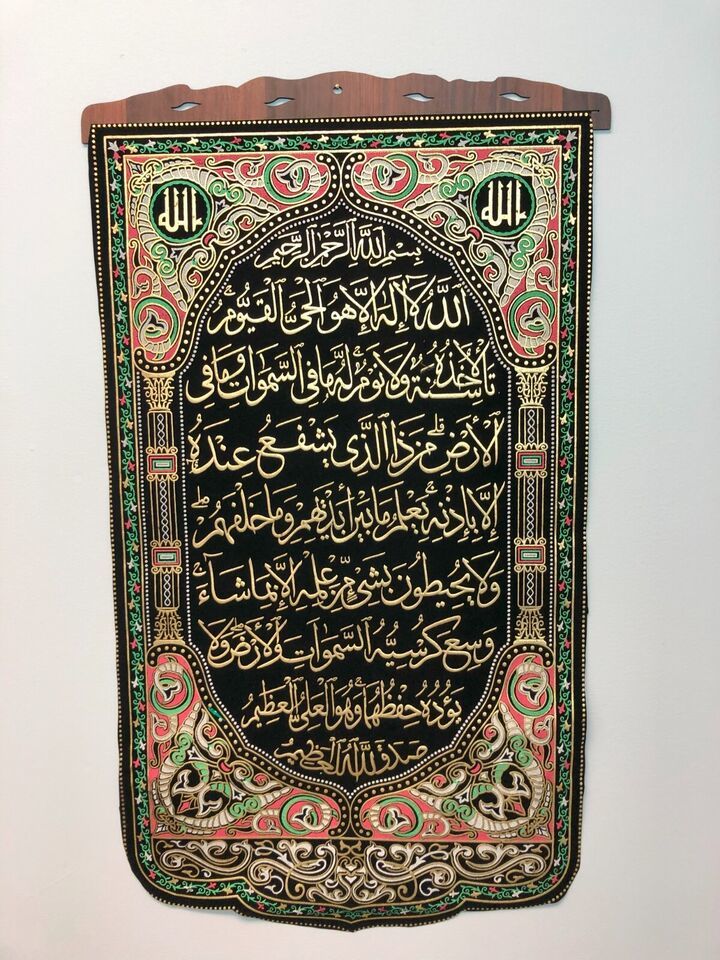 الله
الله
بسم الله الرحمن الرحيم
الله لا إله إلا هو الحي القيوم
لا تأخذه سنة ولا نوم له ما في السموات وما في
الأرض من ذا الذي يشفع عنده
إلا بإذنه يعلم ما بين أيديهم وما خلفهم
ولا يحيطون بشيء من علمه إلا بما شاء
وسع كرسيه السموات والأرض ولا
يؤده حفظهما وهو العلي العظيم
صدق الله العظيم